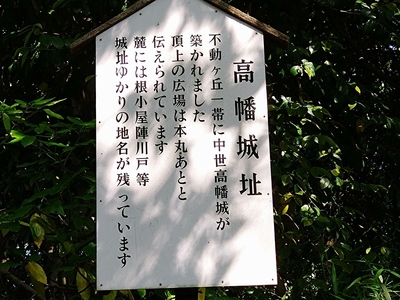 高幡城址
不動ヶ丘一帯に中世高幡城が
築かれました
頂上の広場は本丸あとと
伝えられています
麓には根小屋陣川戸等
城址ゆかりの地名が残っています